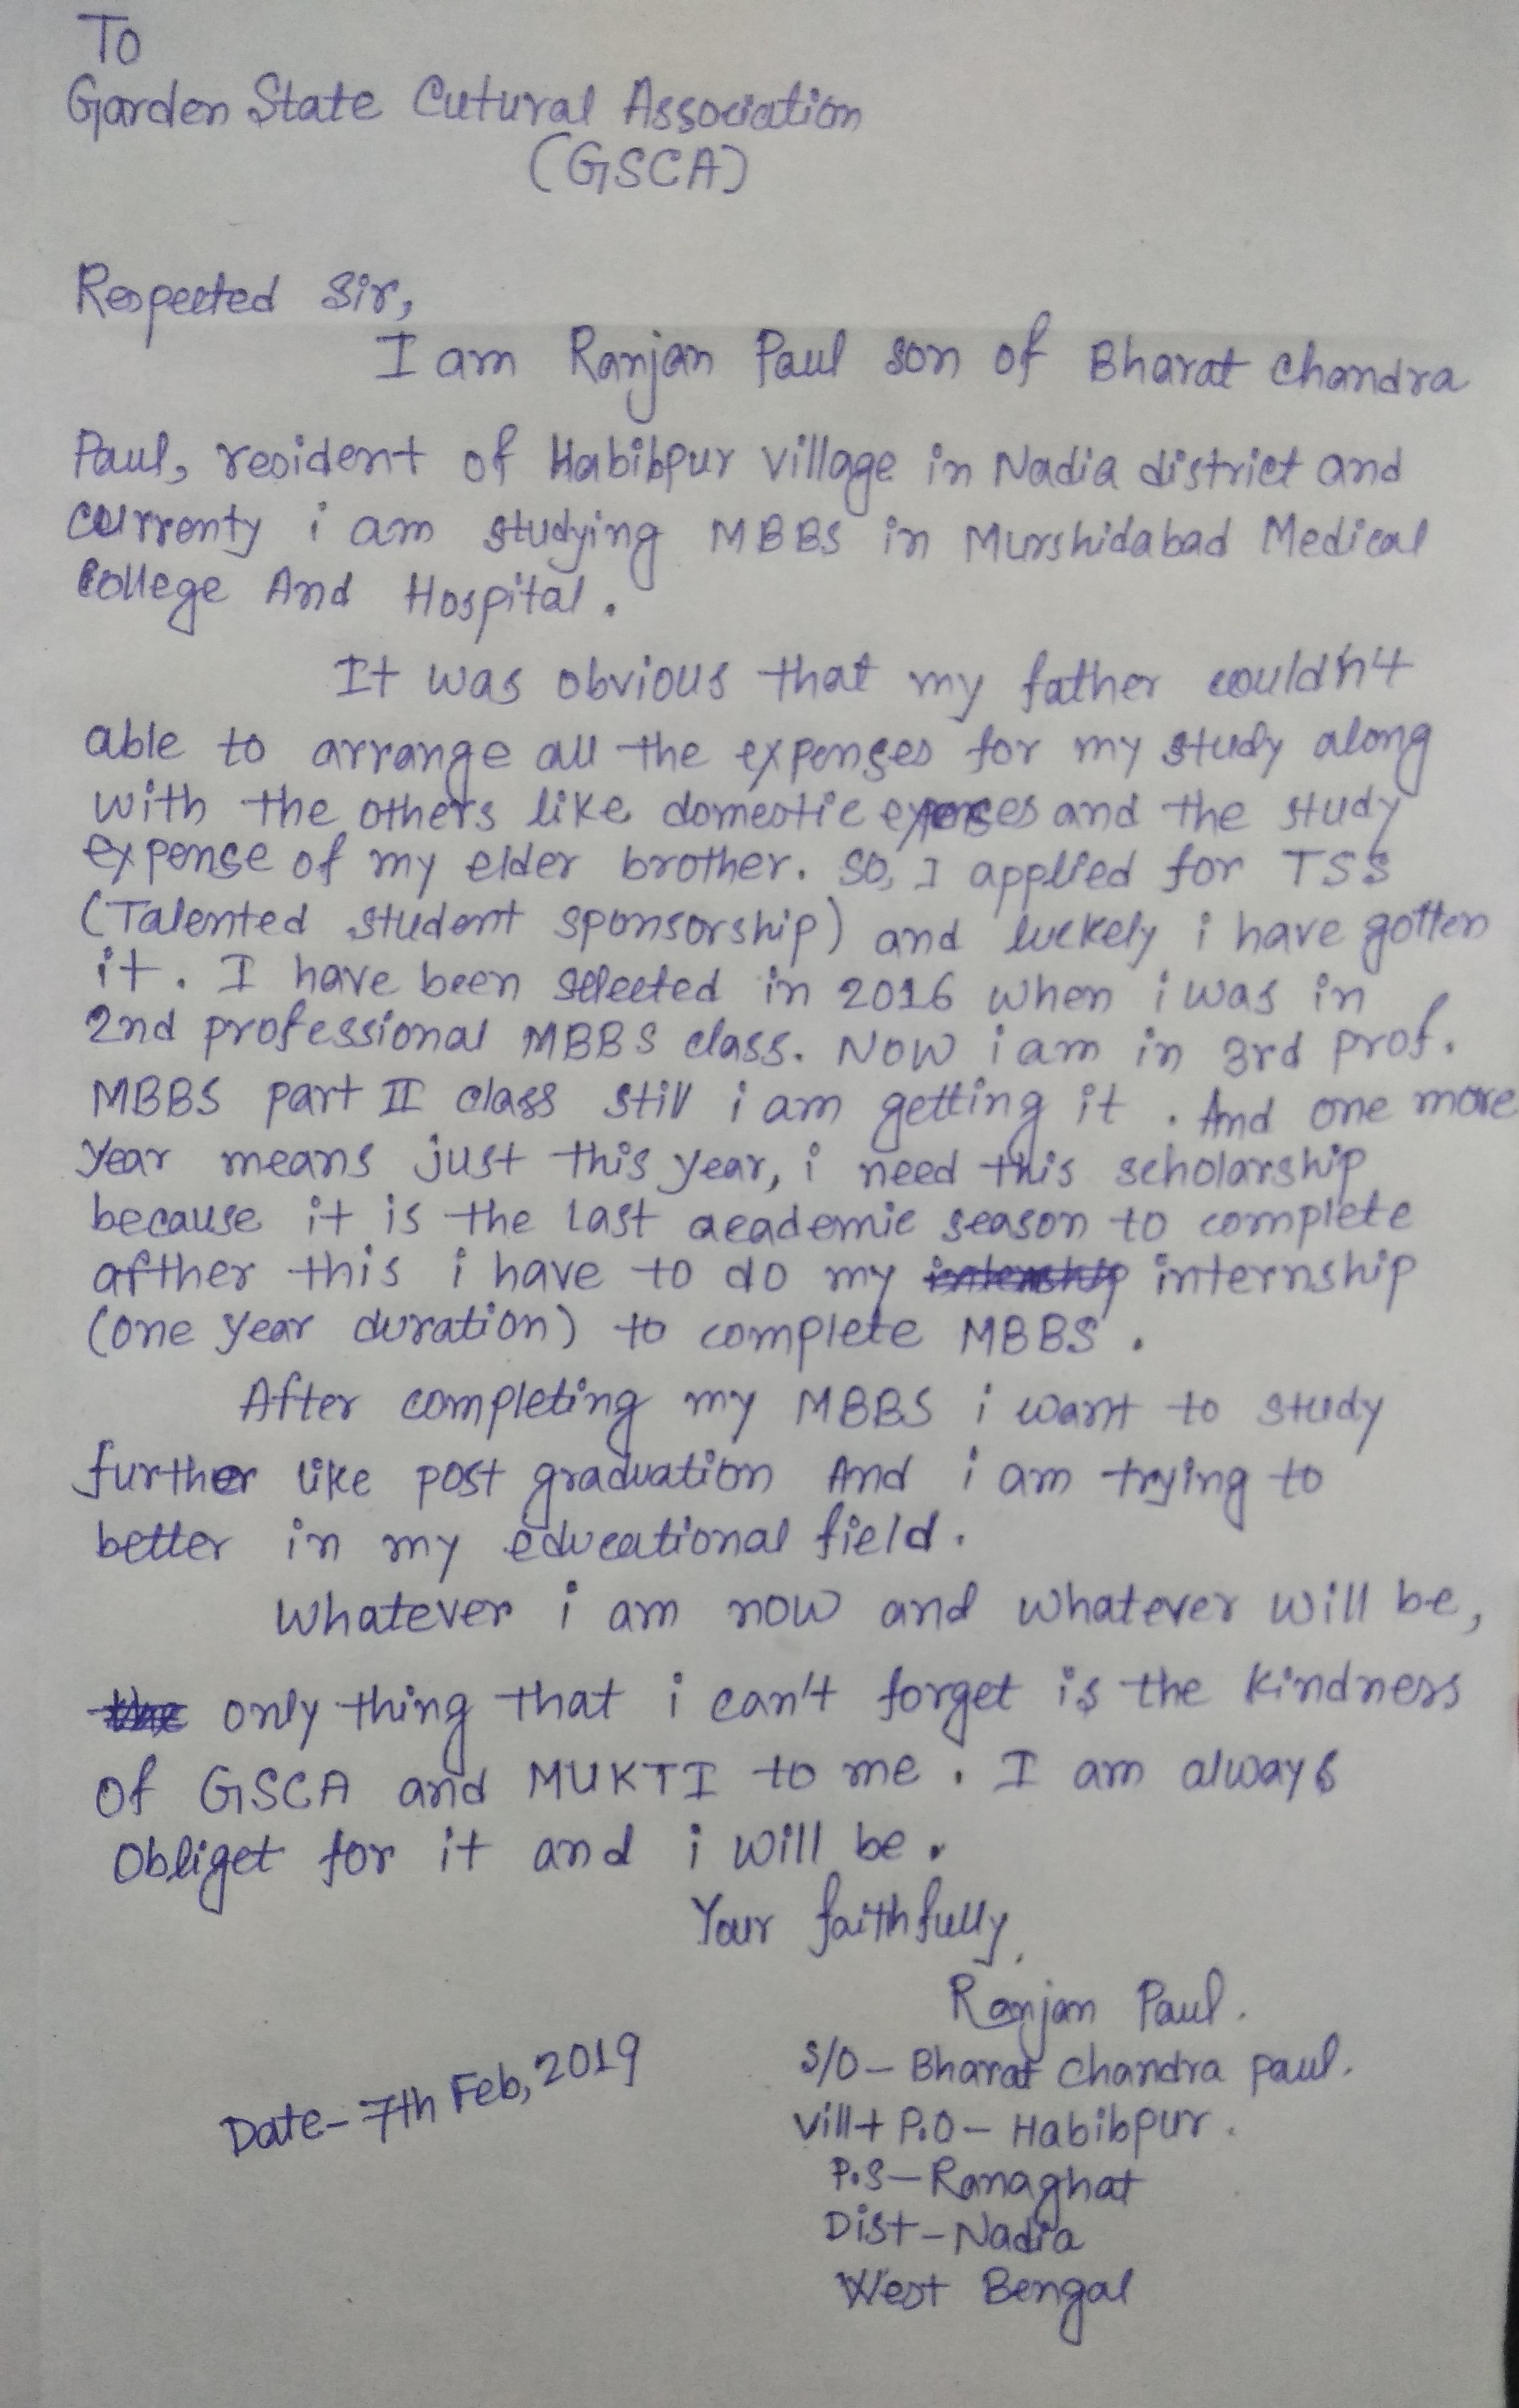 To
Garden State Cutural Association
(GSCA)
Respected Sir,
I am Ranjan Paul son of Bharat Chandra
Paul, resident of Habibpur village in Nadia district and
currenty i am studying MBBS in Murshidabad Medical
College And Hospital.
It was obvious that my father couldn't
able to arrange all the expenses for my study along
with the others like domestic expenses and the study
expense of my elder brother. So, I applied for TSS
(Talented student sponsorship) and luckely i have gotten
it. I have been selected in 2016 when i was in
2nd professional MBBS class. Now i am in 3rd prof.
MBBS part II class still i am getting it. And one more
year means just this year, i need this scholarship
because it is the last academic season to complete
afther this i have to do my internship internship
(one year duration) to complete MBBS.
After completing my MBBS i want to study
further like post graduation And i am trying to
better in my educational field.
Whatever i am now and whatever will be,
the only thing that i can't forget is the kindness
of GSCA and MUKTI to me. I am always
Obliget for it and i will be.
Your faithfully,
Ranjan Paul.
S/O- Bharat Chandra paul.
Vill+ P.O- Habibpur.
P.S- Ranaghat
Dist- Nadia
West Bengal
Date- 7th Feb, 2019